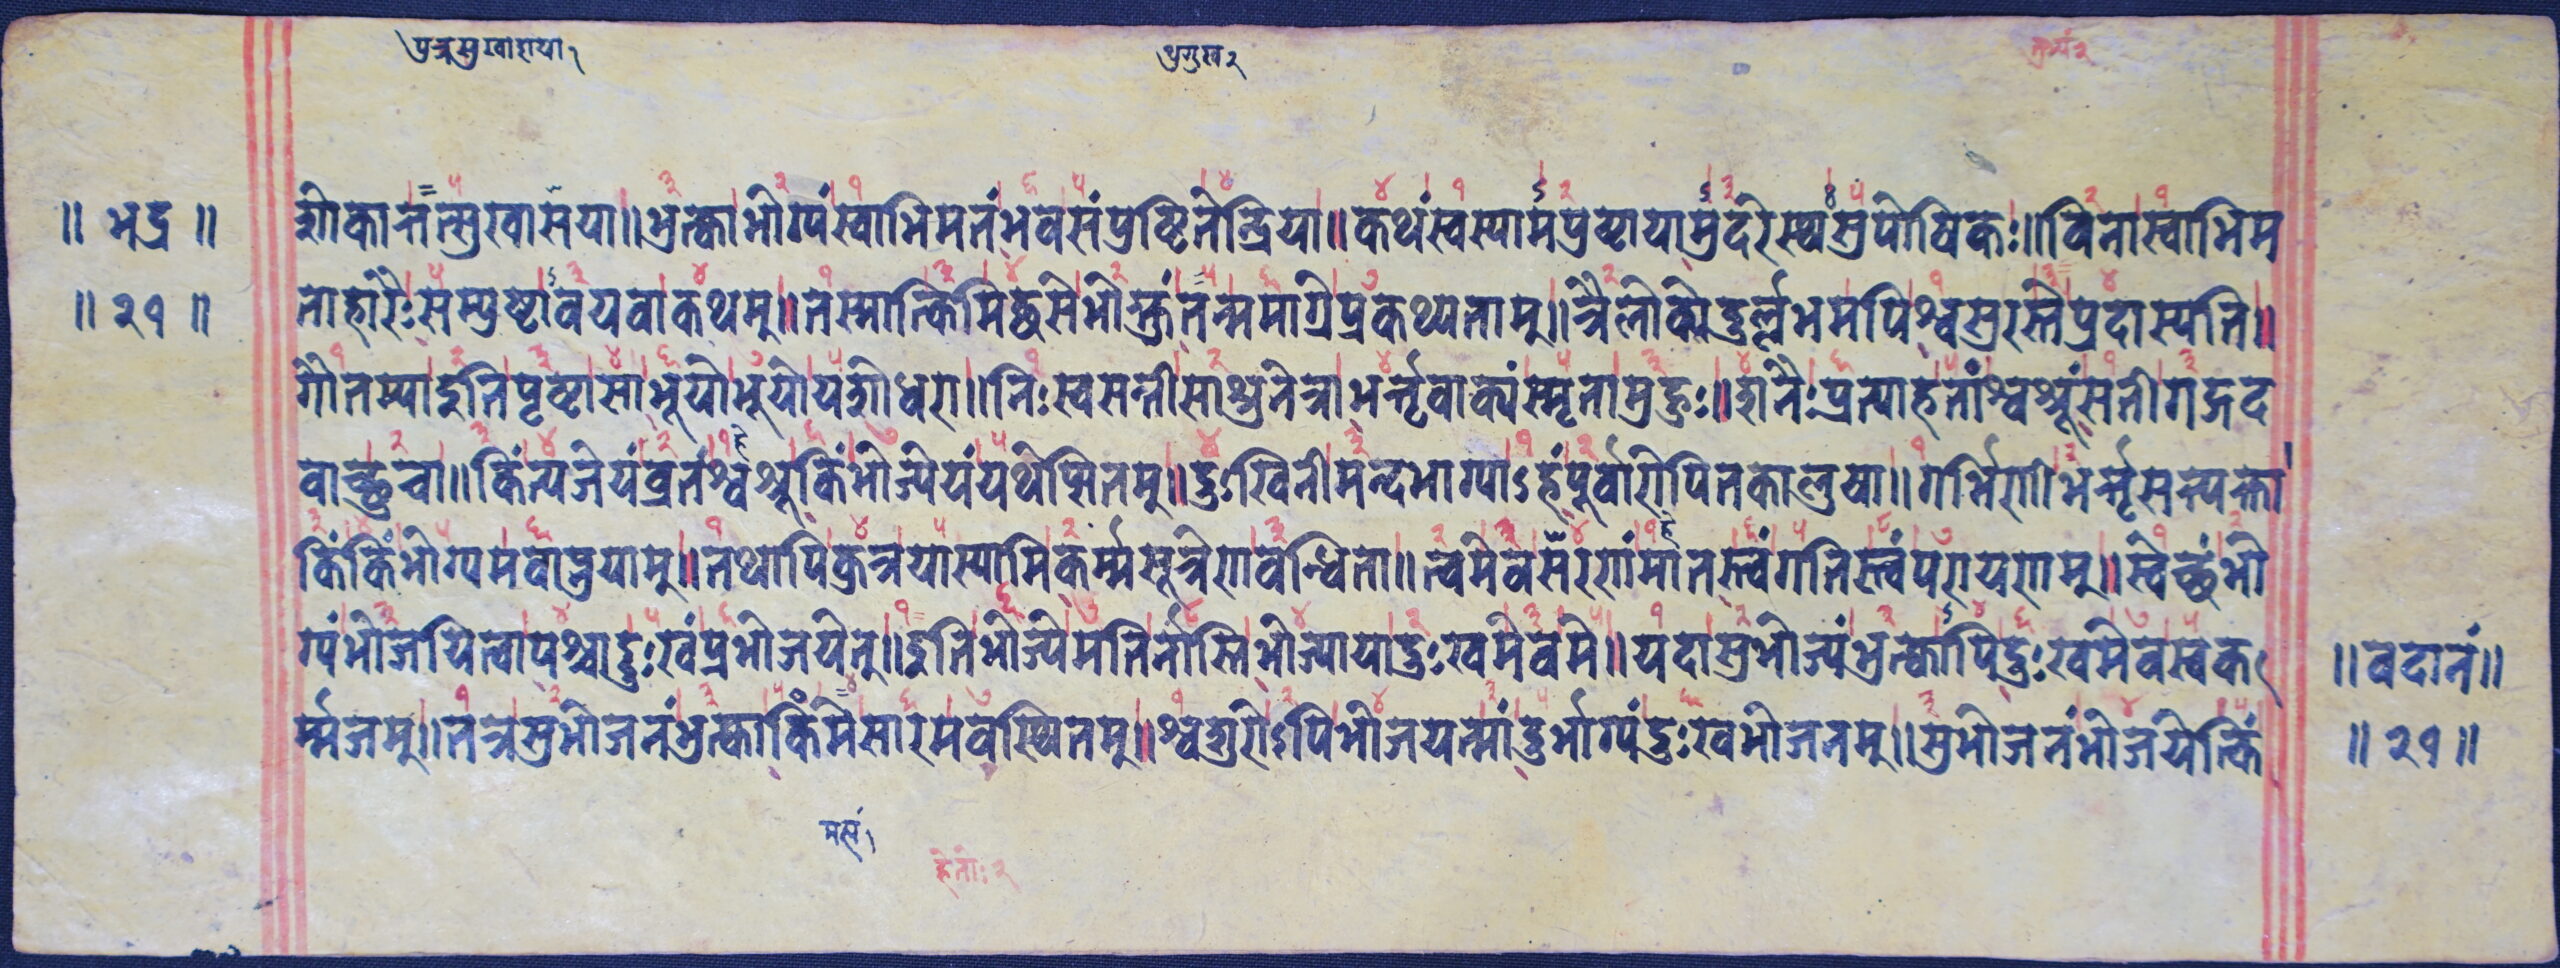 पुत्रसुखाशया १
थुगुख २
तुभ्यं २
॥ भद्र ॥
॥ २१ ॥
शोकात्तत्सुखासया॥भुत्क्वाभोग्यंस्वाभिमतंभवसंप्रष्टितेन्द्रिया॥कथंस्वस्यामप्रष्टायामुदरेस्थ्यसुपोषिकः॥विनास्वाभिम
ताहारैःसन्तुष्टावयवाकथम्॥तस्मात्किमिच्छसेभोक्तुंतन्ममाग्रेप्रकथ्यताम्॥त्रैलोक्येदुर्ल्लभमपिश्वसुरस्तेप्रदास्यति॥
गौतम्यादुतिपृष्टासाभूयोभूयोयशोधरा॥निःस्वसन्तीसाश्रुनेत्राभर्त्तृवाक्यंस्मृतामुहुः॥शनैःप्रत्याहतांश्वश्रूंसतीगद्गद
वाच्छुचा॥किंत्यजेयंव्रतंश्वश्रूकिंभोज्येयंयथेप्सितम्॥दुःखिनीमन्दभाग्याऽहंपूर्वारोपितकालुषा॥गर्भिणीभर्त्तृसन्त्यक्ता
किंकिंभोग्यमवाप्नुयाम्॥तथापिक्रत्रयास्यामिकर्म्मसूत्रेणवन्धिता॥त्वमेवसरणंमातस्त्वंगतिस्त्वंपरायणम्॥स्वेच्छंभो
ग्यंभोजयित्वापश्चाद्दुःखंप्रभोजयेत्॥इतिभोज्येमतिर्नास्तिभोज्यायादुःखमेवमे॥यदासुभोज्यंभुत्क्वापिदुःखमेवस्वक
र्म्मजम्॥तत्रसुभोजनंभुत्क्वाकिंमेसारमवस्थितम्॥श्वशुरोऽपिभोजयन्मांदुर्भाग्यंदुःखभोजनम्॥सुभोजनंभोजयेत्किं
॥वदानं॥
॥ २१ ॥
हेतोः २